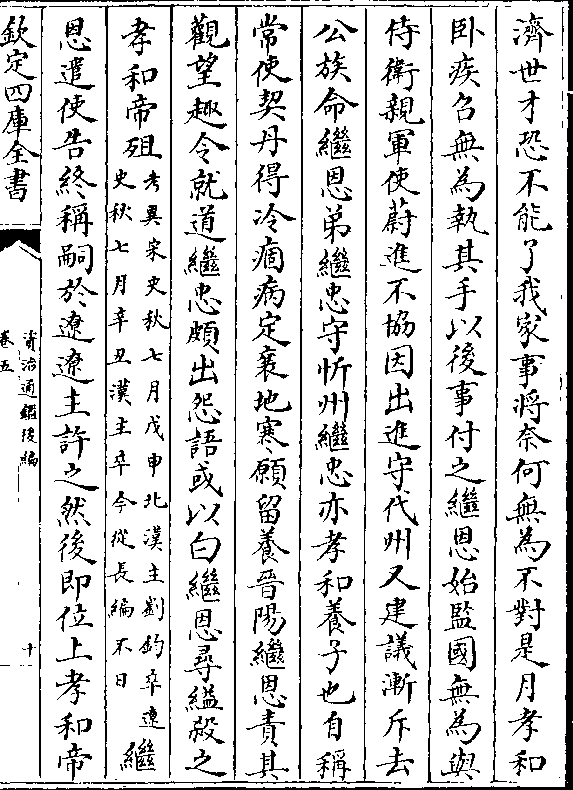 濟世才恐不能了我家事將奈何無為不對是月孝和
卧疾召無為執其手以後事付之繼恩始監國無為與
侍衛親軍使蔚進不協因出進守代州又建議漸斥去
公族命繼恩弟繼忠守忻州繼忠亦孝和養子也自稱
常使契丹得冷痼病定襄地寒願留養晉陽繼恩責其
觀望趣令就道繼忠頗出怨語或以白繼恩尋縊殺之
孝和帝殂考異宋史秋七月戊申北漢主劉鈞卒遼史秋七月辛丑漢主卒今從長編不日繼
恩遣使告終稱嗣於遼遼主許之然後即位上孝和帝
欽定四庫全書
資治通鑑後編
卷五
十